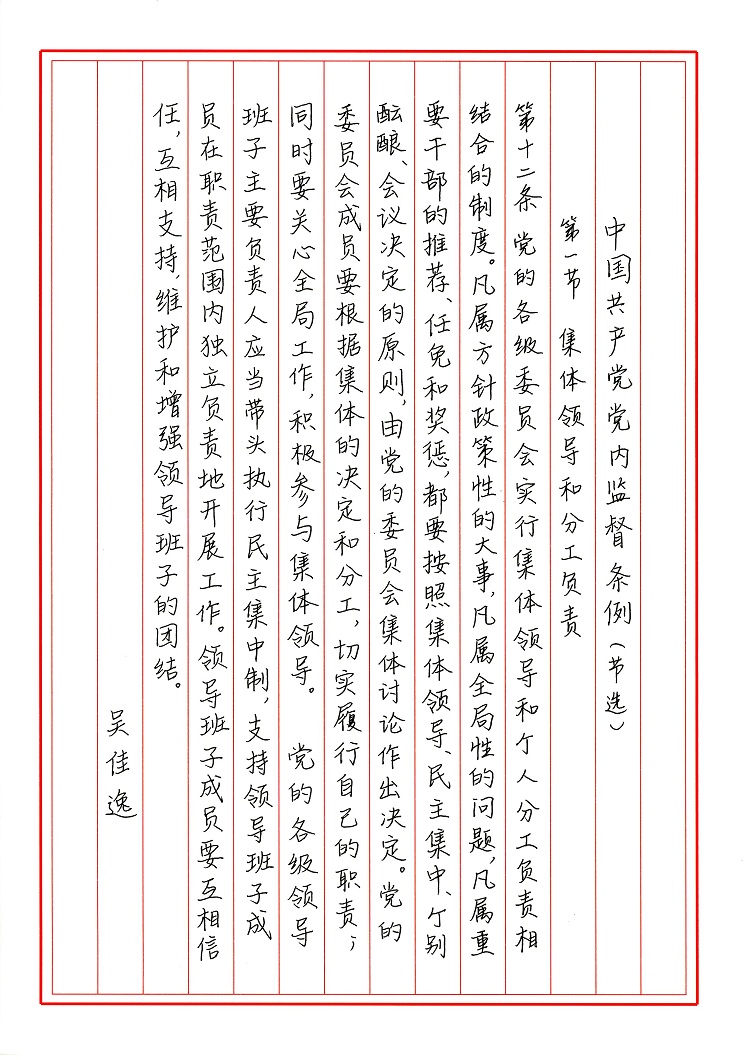 中国共产党党内监督条例(节选)
第一节 集体领导和分工负责
第十二条 党的各级委员会实行集体领导和个人分工负责相
结合的制度。凡属方针政策性的大事,凡属全局性的问题,凡属重
要干部的推荐、任免和奖惩,都要按照集体领导、民主集中、个别
酝酿、会议决定的原则,由党的委员会集体讨论作出决定。党的
委员会成员要根据集体的决定和分工,切实履行自己的职责;
同时要关心全局工作,积极参与集体领导。 党的各级领导
班子主要负责人应当带头执行民主集中制,支持领导班子成
员在职责范围内独立负责地开展工作。领导班子成员要互相信
任,互相支持,维护和增强领导班子的团结。
吴佳逸